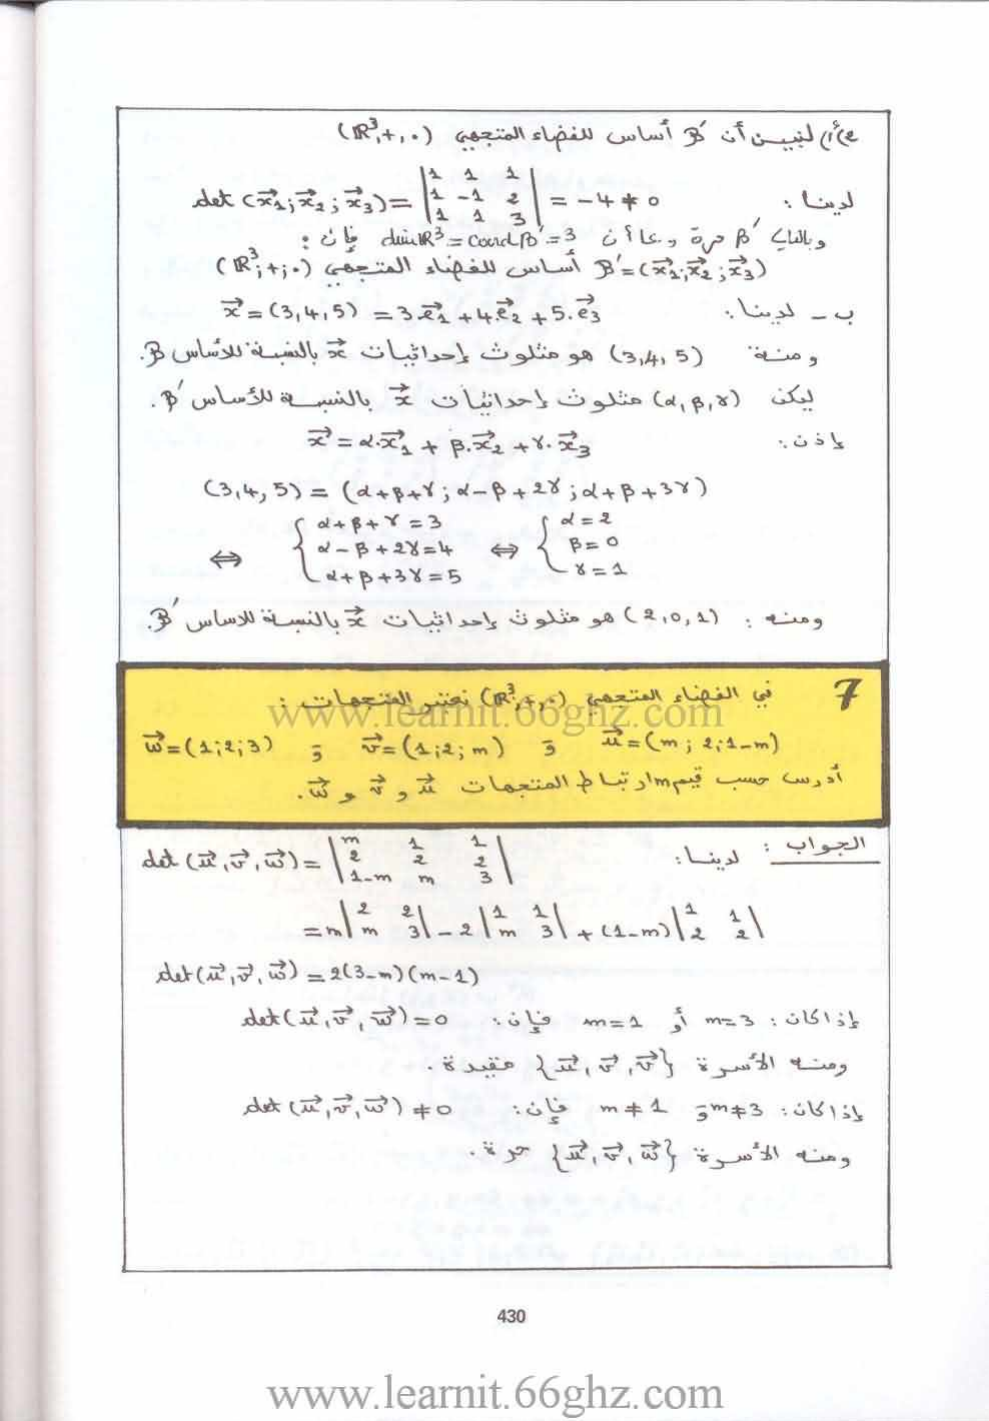 2)أ) لنبين أن 'B أساس للفضاء المتجهي (ℝ³,+,.)
لدينا : det(x⃗₁;x⃗₂;x⃗₃) = |1 1 1; 1 -1 2; 1 1 3| = -4 ≠ 0
وبالتالي 'β حرة وبما أن dimℝ³ = cardβ' = 3 فإن :
B' = (x⃗₁;x⃗₂;x⃗₃) أساس للفضاء المتجهي (ℝ³;+;.)
ب - لدينا : x⃗ = (3,4,5) = 3.e⃗₁ + 4.e⃗₂ + 5.e⃗₃
ومنه (3,4,5) هو مثلوث إحداثيات x⃗ بالنسبة للأساس B.
ليكن (α,β,γ) مثلوث إحداثيات x⃗ بالنسبة للأساس 'β.
إذن : x⃗ = α.x⃗₁ + β.x⃗₂ + γ.x⃗₃
(3,4,5) = (α+β+γ ; α-β+2γ ; α+β+3γ)
⇔ { α+β+γ = 3 ; α-β+2γ = 4 ; α+β+3γ = 5 ⇔ { α = 2 ; β = 0 ; γ = 1
ومنه : (2,0,1) هو مثلوث إحداثيات x⃗ بالنسبة للاساس 'B.
7 في الفضاء المتجهي (ℝ³,+,.) نعتبر المتجهات :
u⃗ = (m ; 2 ; 1-m) و v⃗ = (1;2;m) و w⃗ = (1;2;3)
أدرس حسب قيم m ارتباط المتجهات u⃗ و v⃗ و w⃗.
الجواب : لدينا : det(u⃗,v⃗,w⃗) = |m 1 1; 2 2 2; 1-m m 3|
= m|2 2; m 3| - 2|1 1; m 3| + (1-m)|1 1; 2 2|
det(u⃗,v⃗,w⃗) = 2(3-m)(m-1)
إذا كان : m=3 أو m=1 فإن : det(u⃗,v⃗,w⃗) = 0
ومنه الأسرة {u⃗,v⃗,w⃗} مقيدة.
إذا كان : m≠3 و m≠1 فإن : det(u⃗,v⃗,w⃗) ≠ 0
ومنه الأسرة {u⃗,v⃗,w⃗} حرة.
430
www.learnit.66ghz.com
www.learnit.66ghz.com